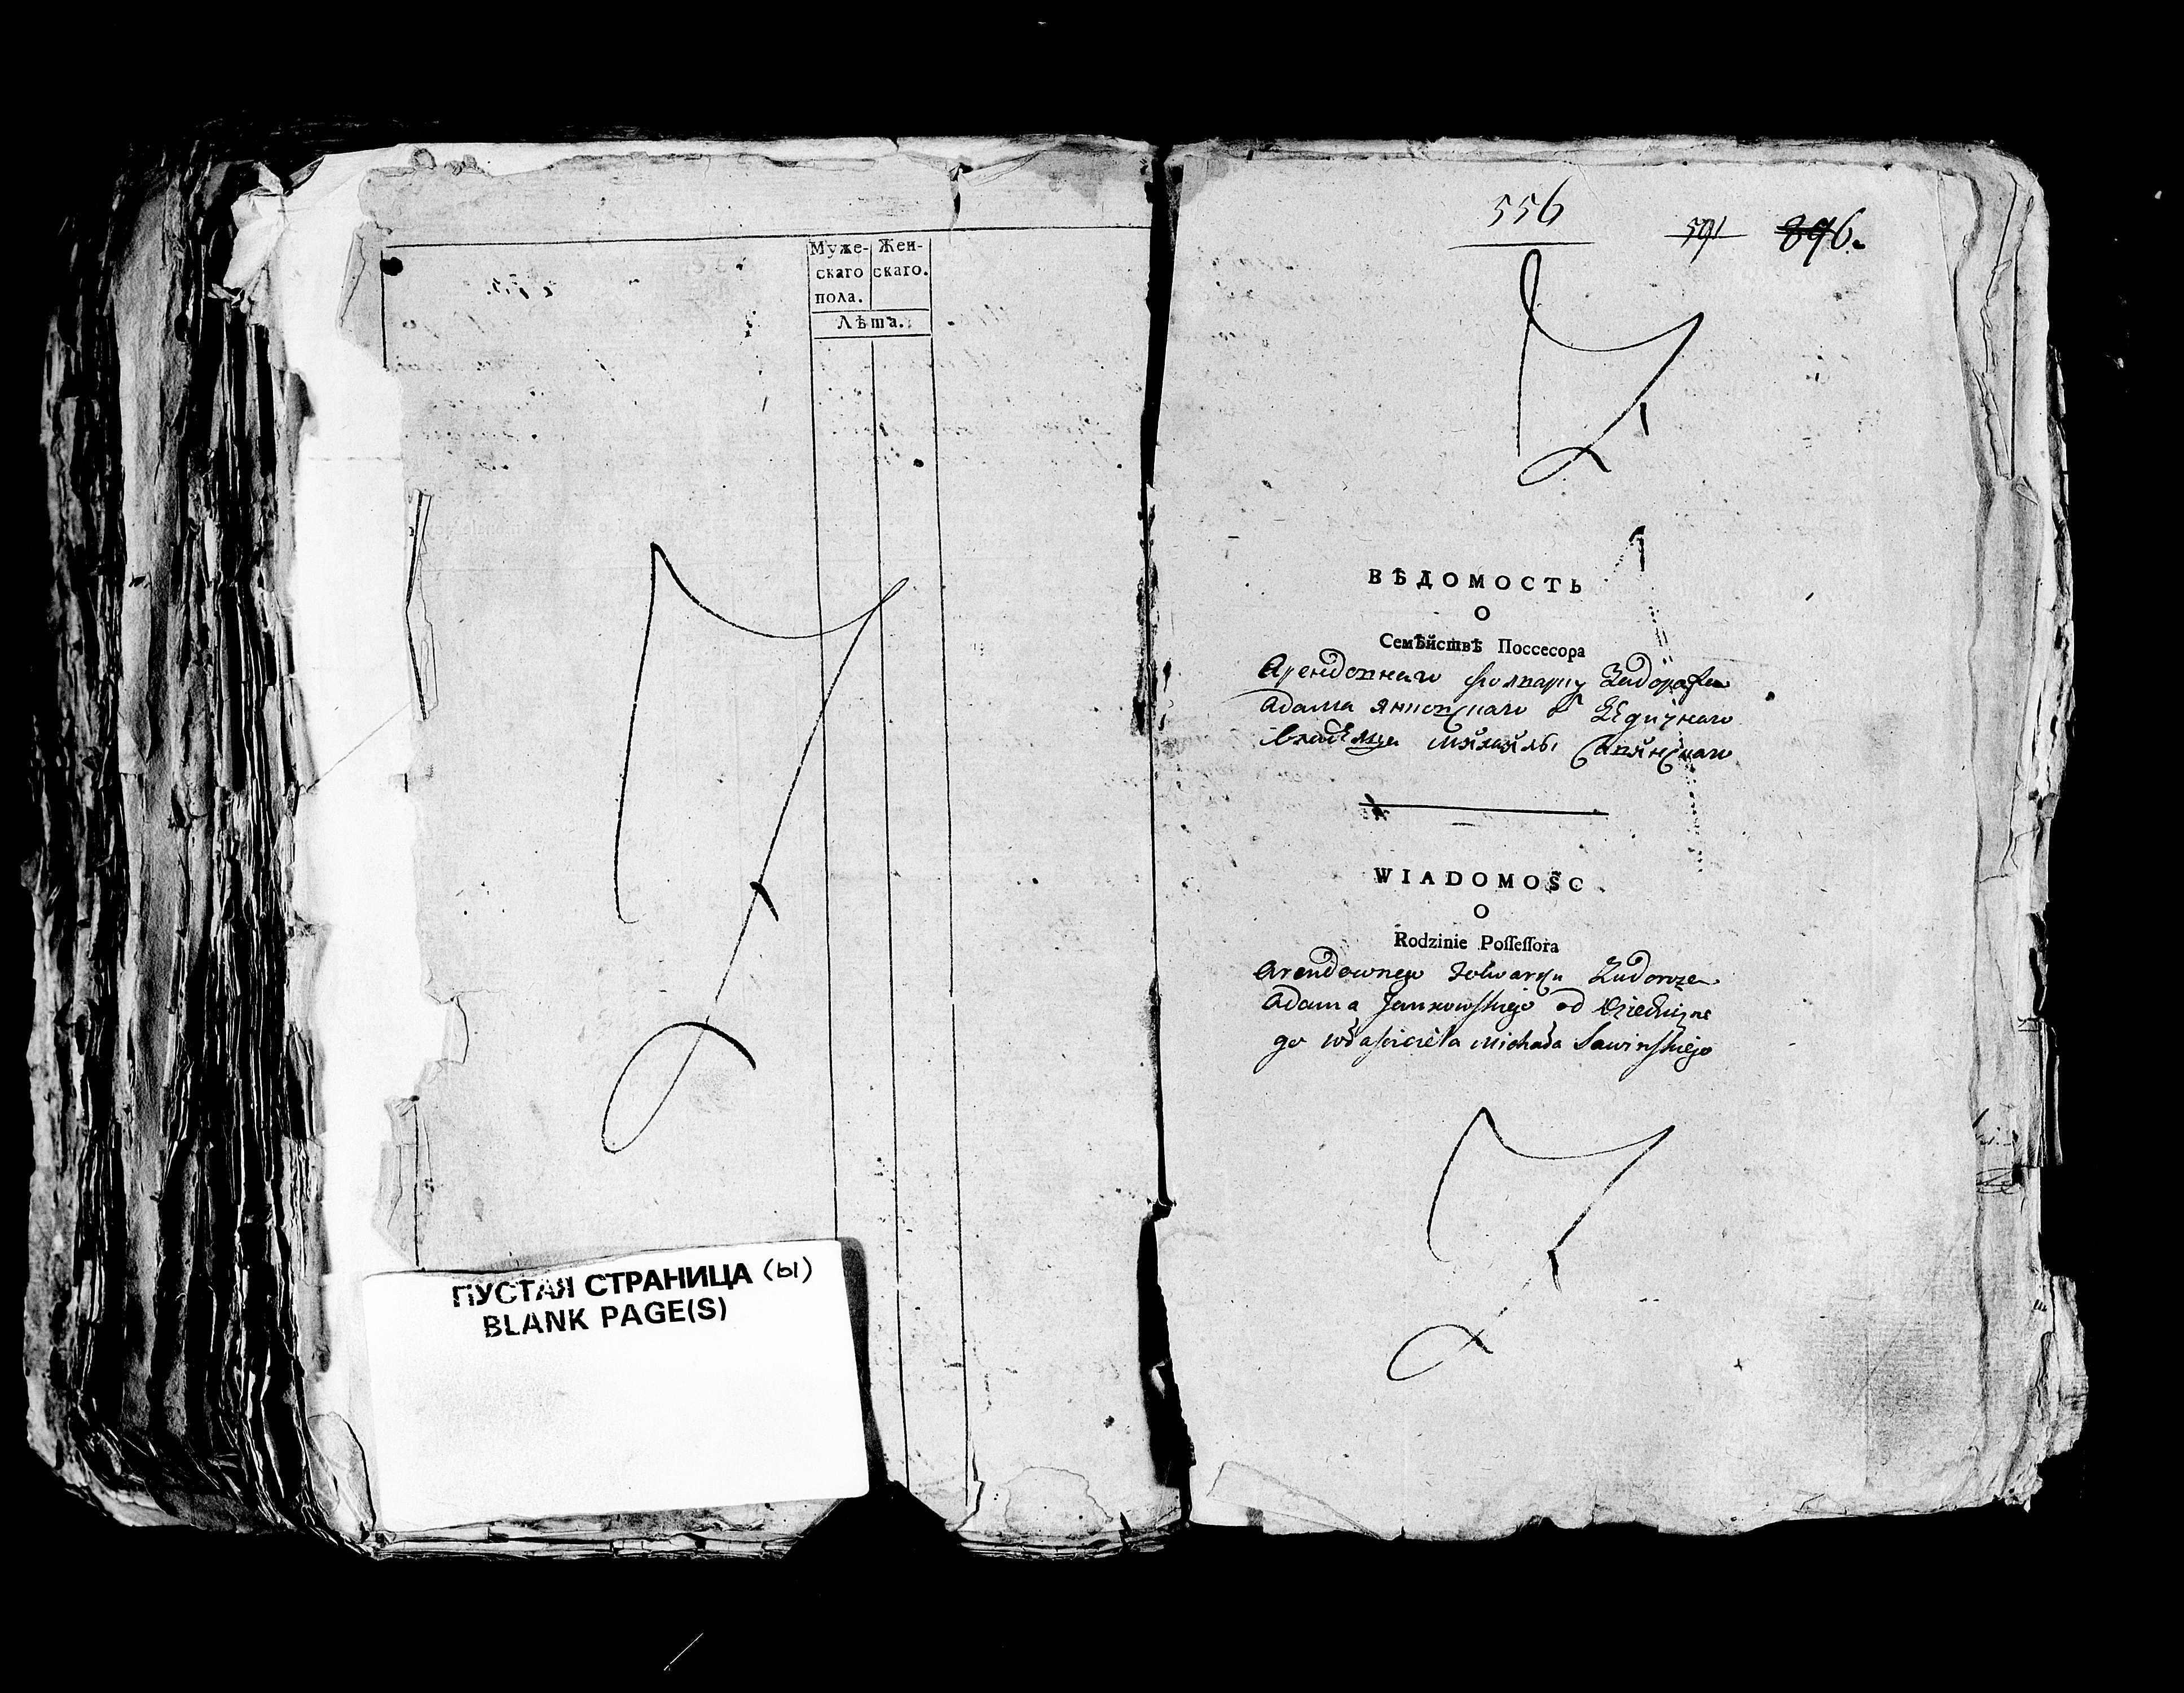 Муже- Жен-
скаго скаго.
пола.
Лѣта.
ПУСТАЯ СТРАНИЦА (ы)
BLANK PAGE(S)
556
591 896.
ВѢДОМОСТЬ
О
Семѣйствѣ Поссесора
Арендовнаго фолварку
Адама Янковскаго
владѣльца Савинскаго
WIADOMOŠC
O
Rodzinie Poſſeſſora
Arendownego Folwarku Zudoroze
Adama Jankowskiego od Dziedyzne
go właściciela Michała Sawinskiego